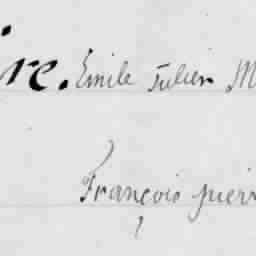 re. Emile Julien M
François pierr